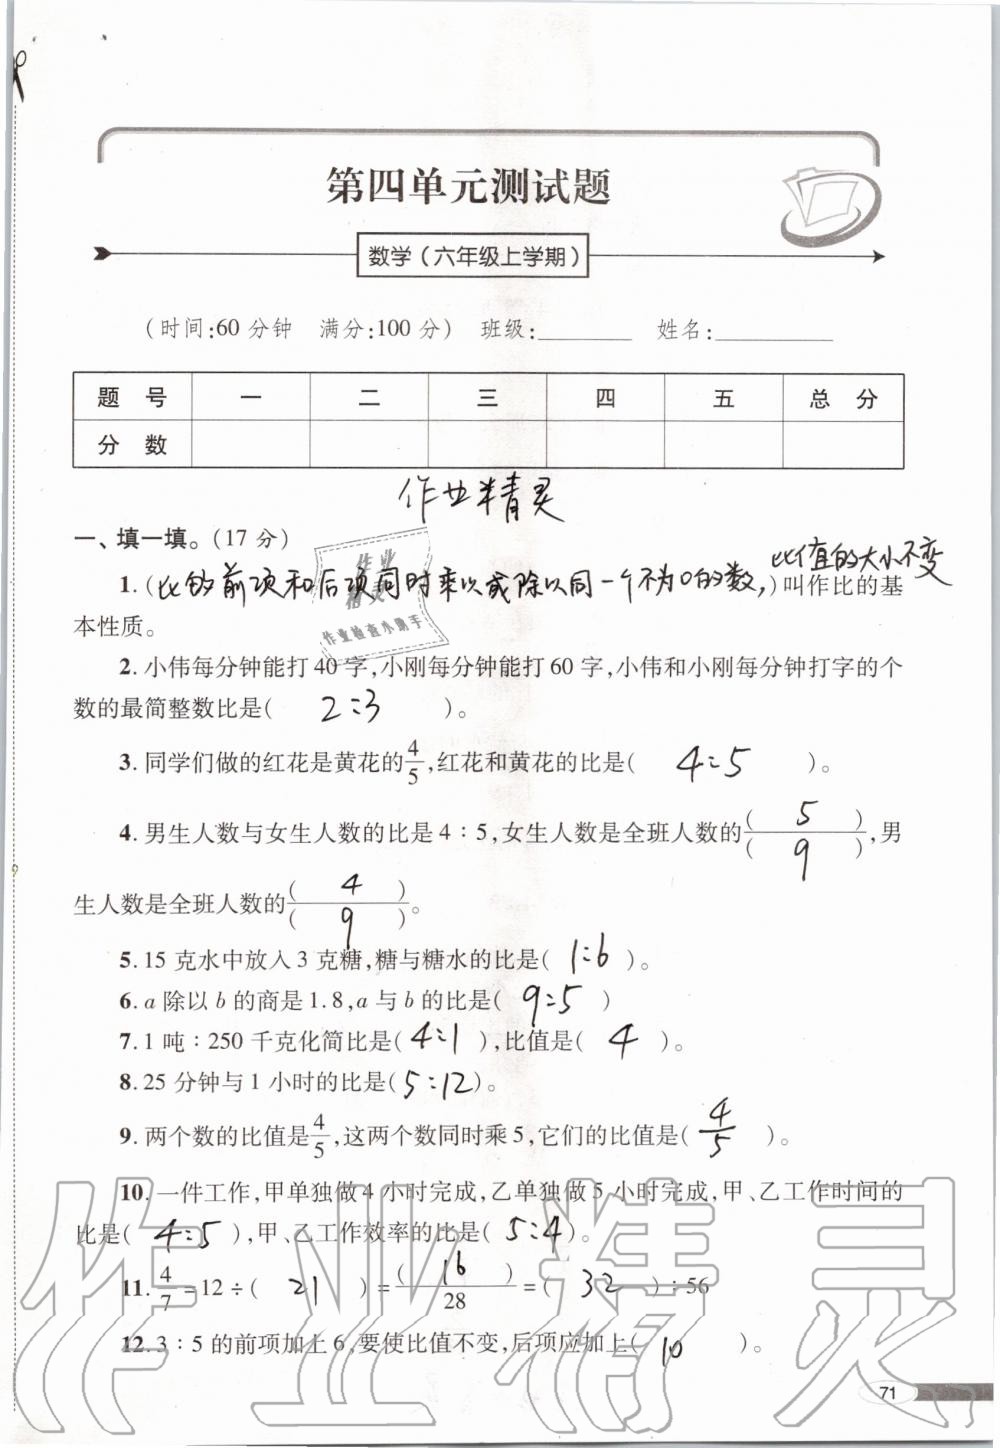 第四单元测试题
数学(六年级上学期)
(时间:60 分钟 满分:100 分) 班级:________ 姓名:__________
题 号 一 二 三 四 五 总 分
分 数
作业精灵
一、填一填。(17 分)
比值的大小不变
1.(比的前项和后项同时乘以或除以同一个不为0的数,)叫作比的基
本性质。
作业
精灵
作业检查小助手
2.小伟每分钟能打 40 字,小刚每分钟能打 60 字,小伟和小刚每分钟打字的个
数的最简整数比是( 2:3 )。
3.同学们做的红花是黄花的4/5,红花和黄花的比是( 4:5 )。
4.男生人数与女生人数的比是 4∶5,女生人数是全班人数的( 5 )/( 9 ),男
生人数是全班人数的( 4 )/( 9 )。
5.15 克水中放入 3 克糖,糖与糖水的比是( 1:6 )。
6.a 除以 b 的商是 1.8,a 与 b 的比是( 9:5 )
7.1 吨∶250 千克化简比是( 4:1 ),比值是( 4 )。
8.25 分钟与 1 小时的比是( 5:12 )。
9.两个数的比值是4/5,这两个数同时乘 5,它们的比值是( 4/5 )。
10.一件工作,甲单独做 4 小时完成,乙单独做 5 小时完成,甲、乙工作时间的
比是( 4:5 ),甲、乙工作效率的比是( 5:4 )。
11.4/7=12÷( 21 )=( 16 )/28=( 32 )∶56
12.3∶5 的前项加上 6,要使比值不变,后项应加上( 10 )。
作业精灵
71